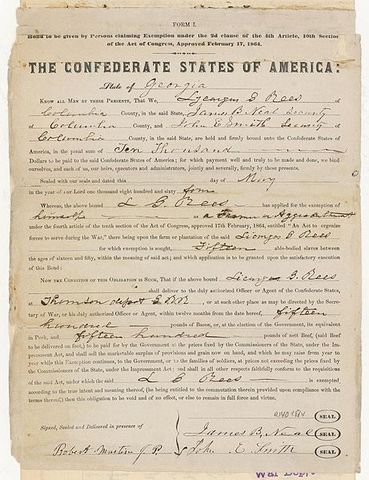 FORM I.
Bond to be given by Persons claiming Exemption under the 2d clause of the 4th Article, 10th Section
of the Act of Congress, Approved February 17, 1864.
THE CONFEDERATE STATES OF AMERICA:
State of Georgia
KNOW ALL MEN BY THESE PRESENTS, That We, Lycurgus G Rees of
Columbia County, in the said State, James B Neal Security
of Columbia County, and John E Smith Security of
Columbia County, in the said State, are held and firmly bound unto the Confederate States
of America, in the penal sum of Ten Thousand
Dollars to be paid to the said Confederate States of America; for which payment well and truly to be made, and done, we bind
ourselves, and each of us, our heirs, executors and administrators, jointly and severally, firmly by these presents.
Sealed with our seals and dated this day of May
in the year of our Lord one thousand eight hundred and sixty four
Whereas, the above bound L G Rees has applied for the exemption of
himself as a Farmer or Agriculturist
under the fourth article of the tenth section of the act of Congress, approved 17th February, 1864, entitled "An Act to organize
forces to serve during the War," there being upon the farm or plantation of the said Lycurgus G Rees
for which exemption is sought, Fifteen able-bodied slaves between
the ages of sixteen and fifty, within the meaning of said act; and which application is to be granted upon the satisfactory execution
of this Bond:
NOW THE CONDITION OF THIS OBLIGATION IS SUCH, That if the above bound Lycurgus G. Rees
shall deliver to the duly authorized Officer or Agent of the Confederate States,
at Thomson depot G R R, or at such other place as may be directed by the Secretary
of War, or his duly authorized Officer or Agent, within twelve months from the date hereof, fifteen
hundred pounds of Bacon, or, at the election of the Government, its equivalent
in Pork, and fifteen hundred pounds of net Beef, (said Beef
to be delivered on foot,) to be paid for by the Government at the prices fixed by the Commissioners of the State, under the Im-
pressment Act, and shall sell the marketable surplus of provisions and grain now on hand, and which he may raise from year to
year while this Exemption continues, to the Government, or to the families of soldiers, at prices not exceeding the prices fixed by
the Commissioners of the State, under the Impressment Act; and shall in all other respects faithfully conform to the requisitions
of the said Act, under which the said L G Rees is exempted
according to the true intent and meaning thereof, (he being entitled to the commutation therein provided upon compliance with the
terms thereof,) then this obligation to be void and of no effect, or else to remain in full force and virtue.
Signed, Sealed and Delivered in presence of
James B. Neal SEAL
Robert Martin J P John E. Smith SEAL
SEAL